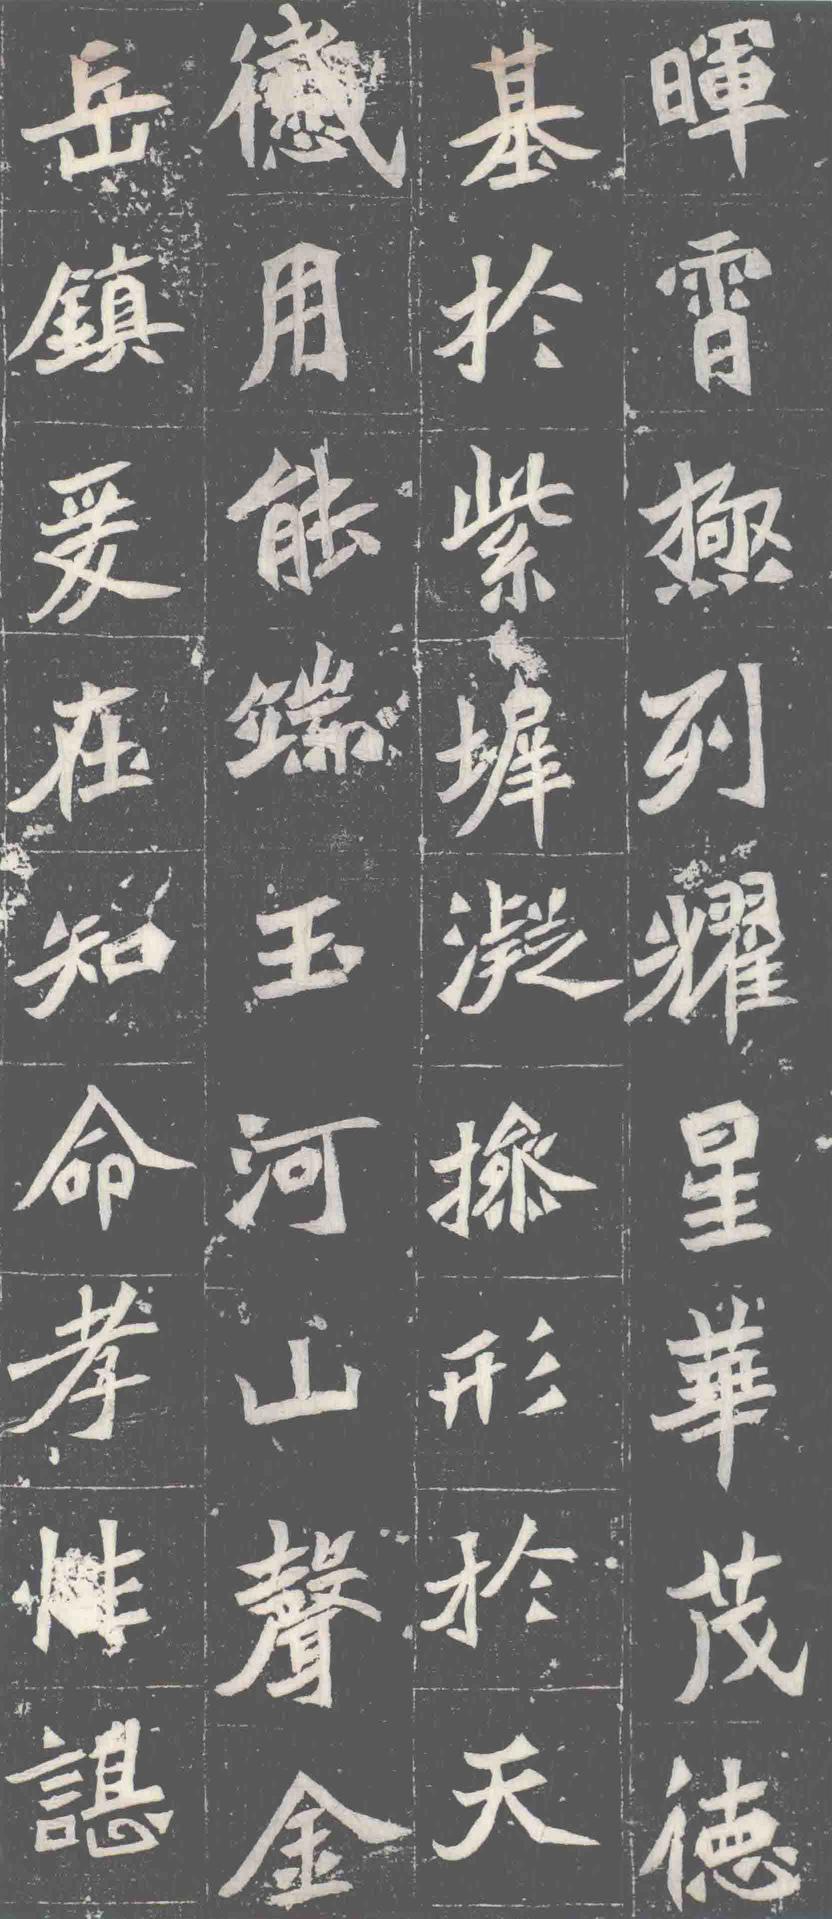 暉霄極列耀星華茂德
基於紫墀凝操形於天
用能端玉河山聲金
岳鎮爰在知命孝性諶